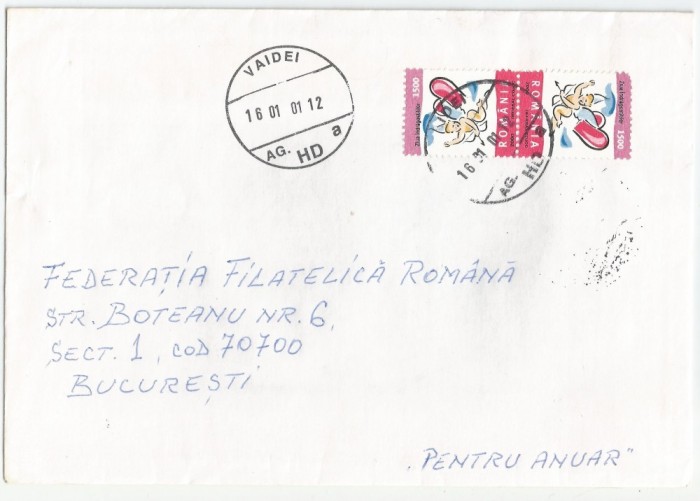 VAIDEI
16 01 01 12
AG. HD a
1500
ROMÂNIA
ROMÂNIA
Ziua Îndrăgostiţilor
1500
16 01 01
AG. HD a
FEDERAŢIA FILATELICĂ ROMÂNĂ
STR. BOTEANU NR. 6,
SECT. 1, COD 70700
BUCUREŞTI
„PENTRU ANUAR"